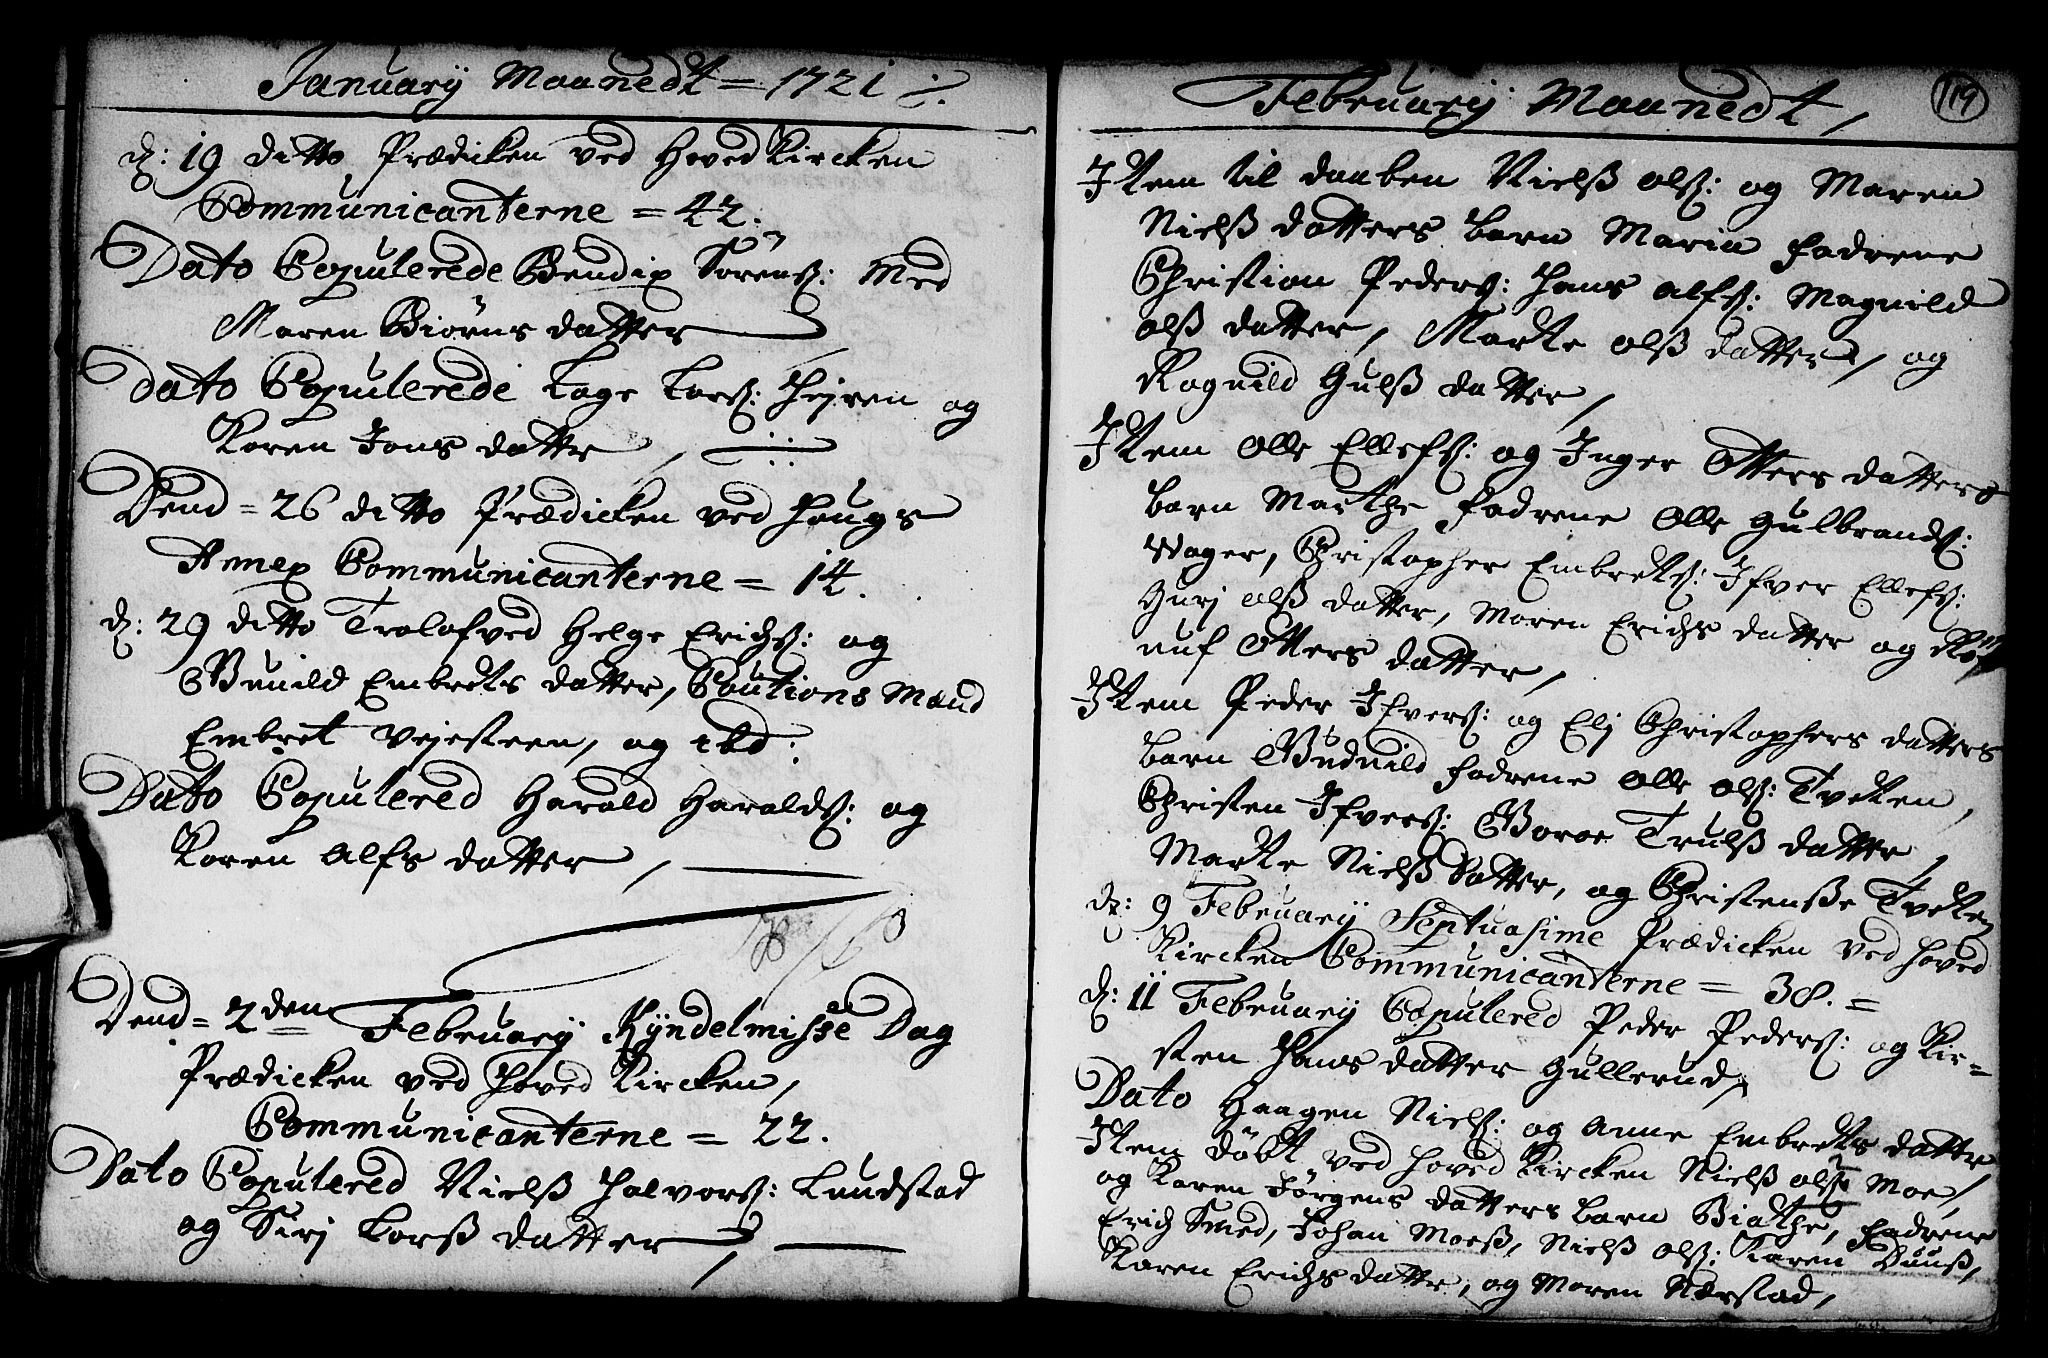 Januarij Maanedt = 1721
d: 19 ditto Prædicken ved Hoved Kircken
Communicanterne = 42.
Dato Copulerede Bendix Sörenß: Med
Maren Biörns datter
Dato Copulerede Lage Larß: Hejren og
Karen Jons datter,
Dend = 26 ditto Prædicken ved Haugs
Annex Communicanterne = 14.
d: 29 ditto Trolofved Helge Erichß: og
Gunild Embrets datter, Cautions Mænd
Embret Vejesteen, og
Dato Copulered Harald Haraldß: og
Karen Alfs datter,
Dend = 2den Februarij Kyndelmisse Dag
Prædicken ved Hoved Kircken,
Communicanterne = 22.
Dato Copulered Nielß Halvorß: Lundstad
og Sirj Larß datter,
Februarij Maanedt,
119
Item til daaben Nielß Olß: og Maren
Nielß datters barn Maria fadrene
Christian Pederß: Hans Alfß: Magnild
Olß datter, Marte Olß datter, og
Ragnild Gulß datter,
Item Olle Ellefß: og Inger Otters datters
barn Marthe fadrene Olle Gulbrandß:
Wager, Christopher Embretß: Ifver Ellefß:
Gurj Olß datter, Maren Erichs datter og
Otters datter,
Item Peder Ifverß: og Elj Christophers datters
barn Gudnild fadrene Olle Olß: Tveten,
Christen Ifverß: Boroe Trulß datter,
Marte Nielß Datter, og Christenße Tveten
d: 9 Februarij Septuasime Prædicken ved Hoved
Kircken Communicanterne = 38. =
d: 11 Februarij Copulered Peder Pederß: og Kir=
sten Hans datter Gullerud,
Dato Haagen Nielß: og Anne Embrets datter
Item döbt ved Hoved Kircken Nielß Olß: Moe,
og Karen Jörgens datters barn Biathe, fadrene
Erich Smed, Johan Moeß, Nielß Olß: Karen Duuß,
Karen Erichs datter, og Maren Nærstad,